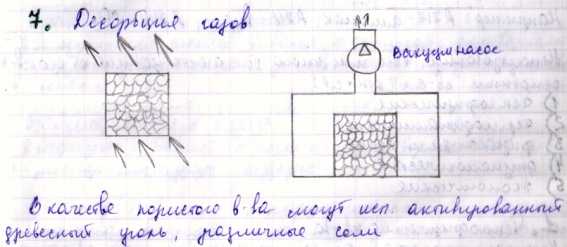 7. Десорбция газов
Вакуум насос
В качестве пористого в-ва могут исп. активированный
древесный уголь, различные соли